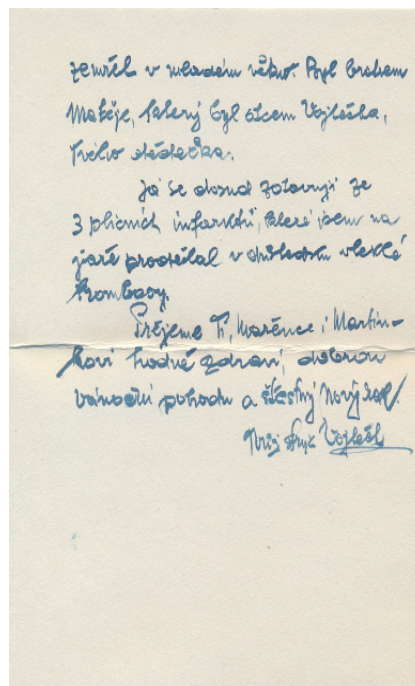 zemřel v mladém věku. Byl bratrem
Matěje, který byl otcem Vojtěcha,
Tvého dědečka.
Já se dosud zotavuji ze
3 plicních infarktů, které jsem na
jaře prodělal v důsledku vleklé
trombosy.
Přejeme Ti, Mařence i Martin-
kovi hodně zdraví, dobrou
vánoční pohodu a šťastný Nový rok!
Tvůj strýc Vojtěch